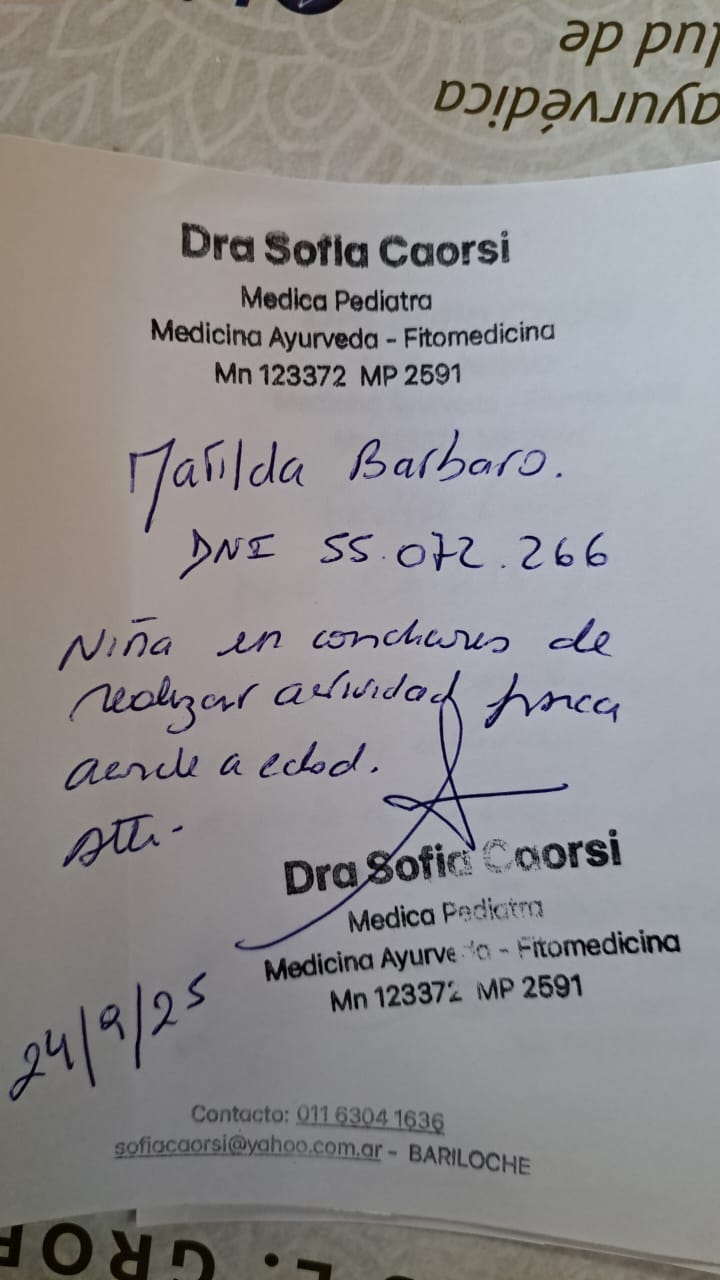 lud de
ayurvédica
Dra Sofia Caorsi
Medica Pediatra
Medicina Ayurveda - Fitomedicina
Mn 123372 MP 2591
Matilda Barbaro.
DNI 55.072.266
Niña en condiciones de
realizar actividad fisica
acorde a edad.
Atte-
Dra Sofia Caorsi
Medica Pediatra
Medicina Ayurveda - Fitomedicina
Mn 123372 MP 2591
24/9/25
Contacto: 011 6304 1636
sofiacaorsi@yahoo.com.ar - BARILOCHE